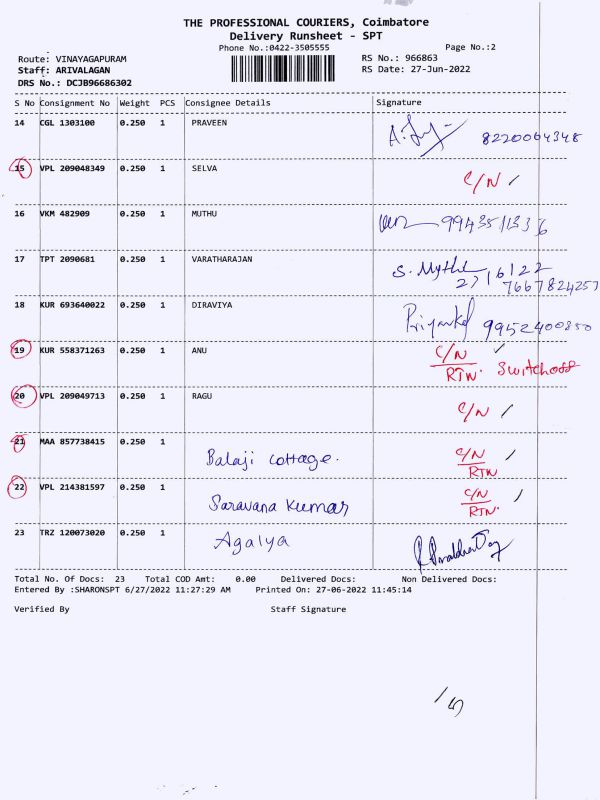 THE PROFESSIONAL COURIERS, Coimbatore
Delivery Runsheet - SPT
Phone No.:0422-3505555 Page No.:2
Route: VINAYAGAPURAM RS No.: 966863
Staff: ARIVALAGAN RS Date: 27-Jun-2022
DRS No.: DCJB96686302
S No Consignment No Weight PCS Consignee Details Signature
14 CGL 1303100 0.250 1 PRAVEEN 8220064348
15 VPL 209048349 0.250 1 SELVA C/N
16 VKM 482909 0.250 1 MUTHU 9943511336
17 TPT 2090681 0.250 1 VARATHARAJAN S. Mythi 2716122
7667824257
18 KUR 693640022 0.250 1 DIRAVIYA Priyanka 9952400850
19 KUR 558371263 0.250 1 ANU C/N
RTN. Switchoff
20 VPL 209049713 0.250 1 RAGU C/N
21 MAA 857738415 0.250 1 Balaji cottage. C/N
RTN
22 VPL 214381597 0.250 1 Saravana kumar C/N
RTN.
23 TRZ 120073020 0.250 1 Agalya
Total No. Of Docs: 23 Total COD Amt: 0.00 Delivered Docs: Non Delivered Docs:
Entered By :SHARONSPT 6/27/2022 11:27:29 AM Printed On: 27-06-2022 11:45:14
Verified By Staff Signature